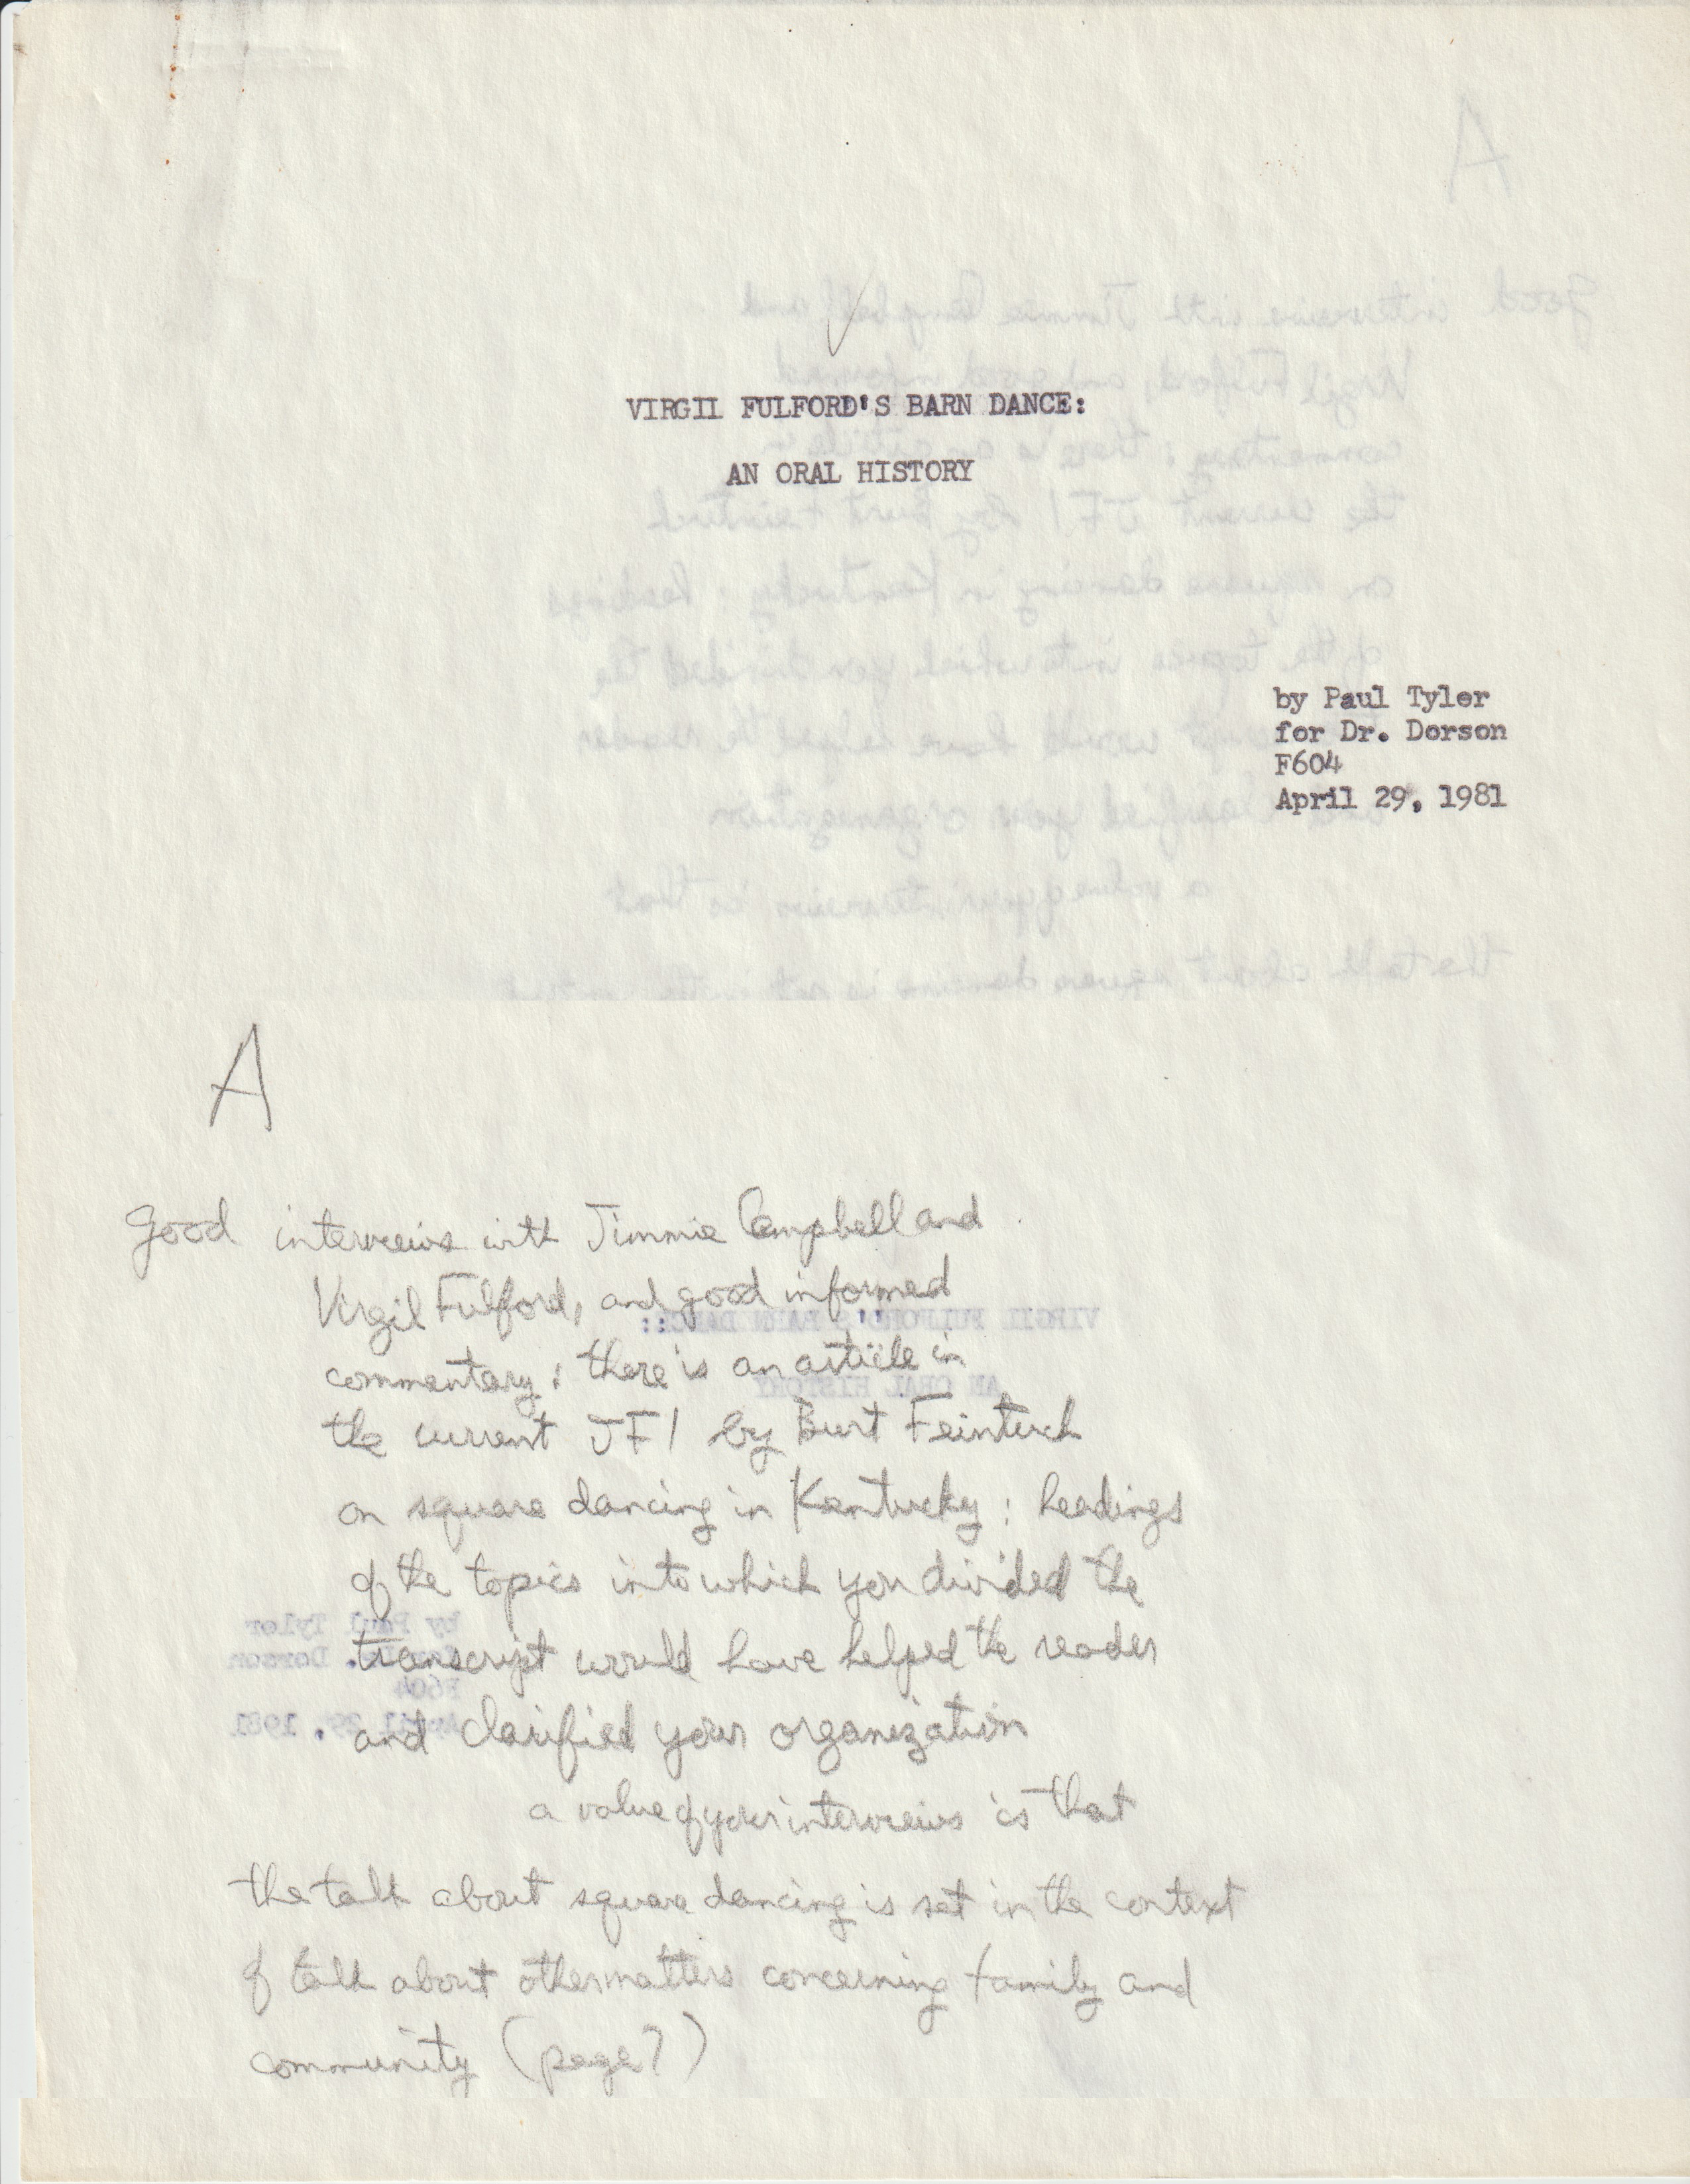 VIRGIL FULFORD'S BARN DANCE:
AN ORAL HISTORY
by Paul Tyler
for Dr. Dorson
F604
April 29, 1981
A
Good interviews with Jimmie Campbell and
Virgil Fulford, and good informed
commentary; there is an article in
the current JFI by Burt Feintuch
on square dancing in Kentucky; headings
of the topics into which you divided the
transcript would have helped the reader
and clarified your organization
a value of your interviews is that
the talk about square dancing is set in the context
of talk about other matters concerning family and
community (page 7)